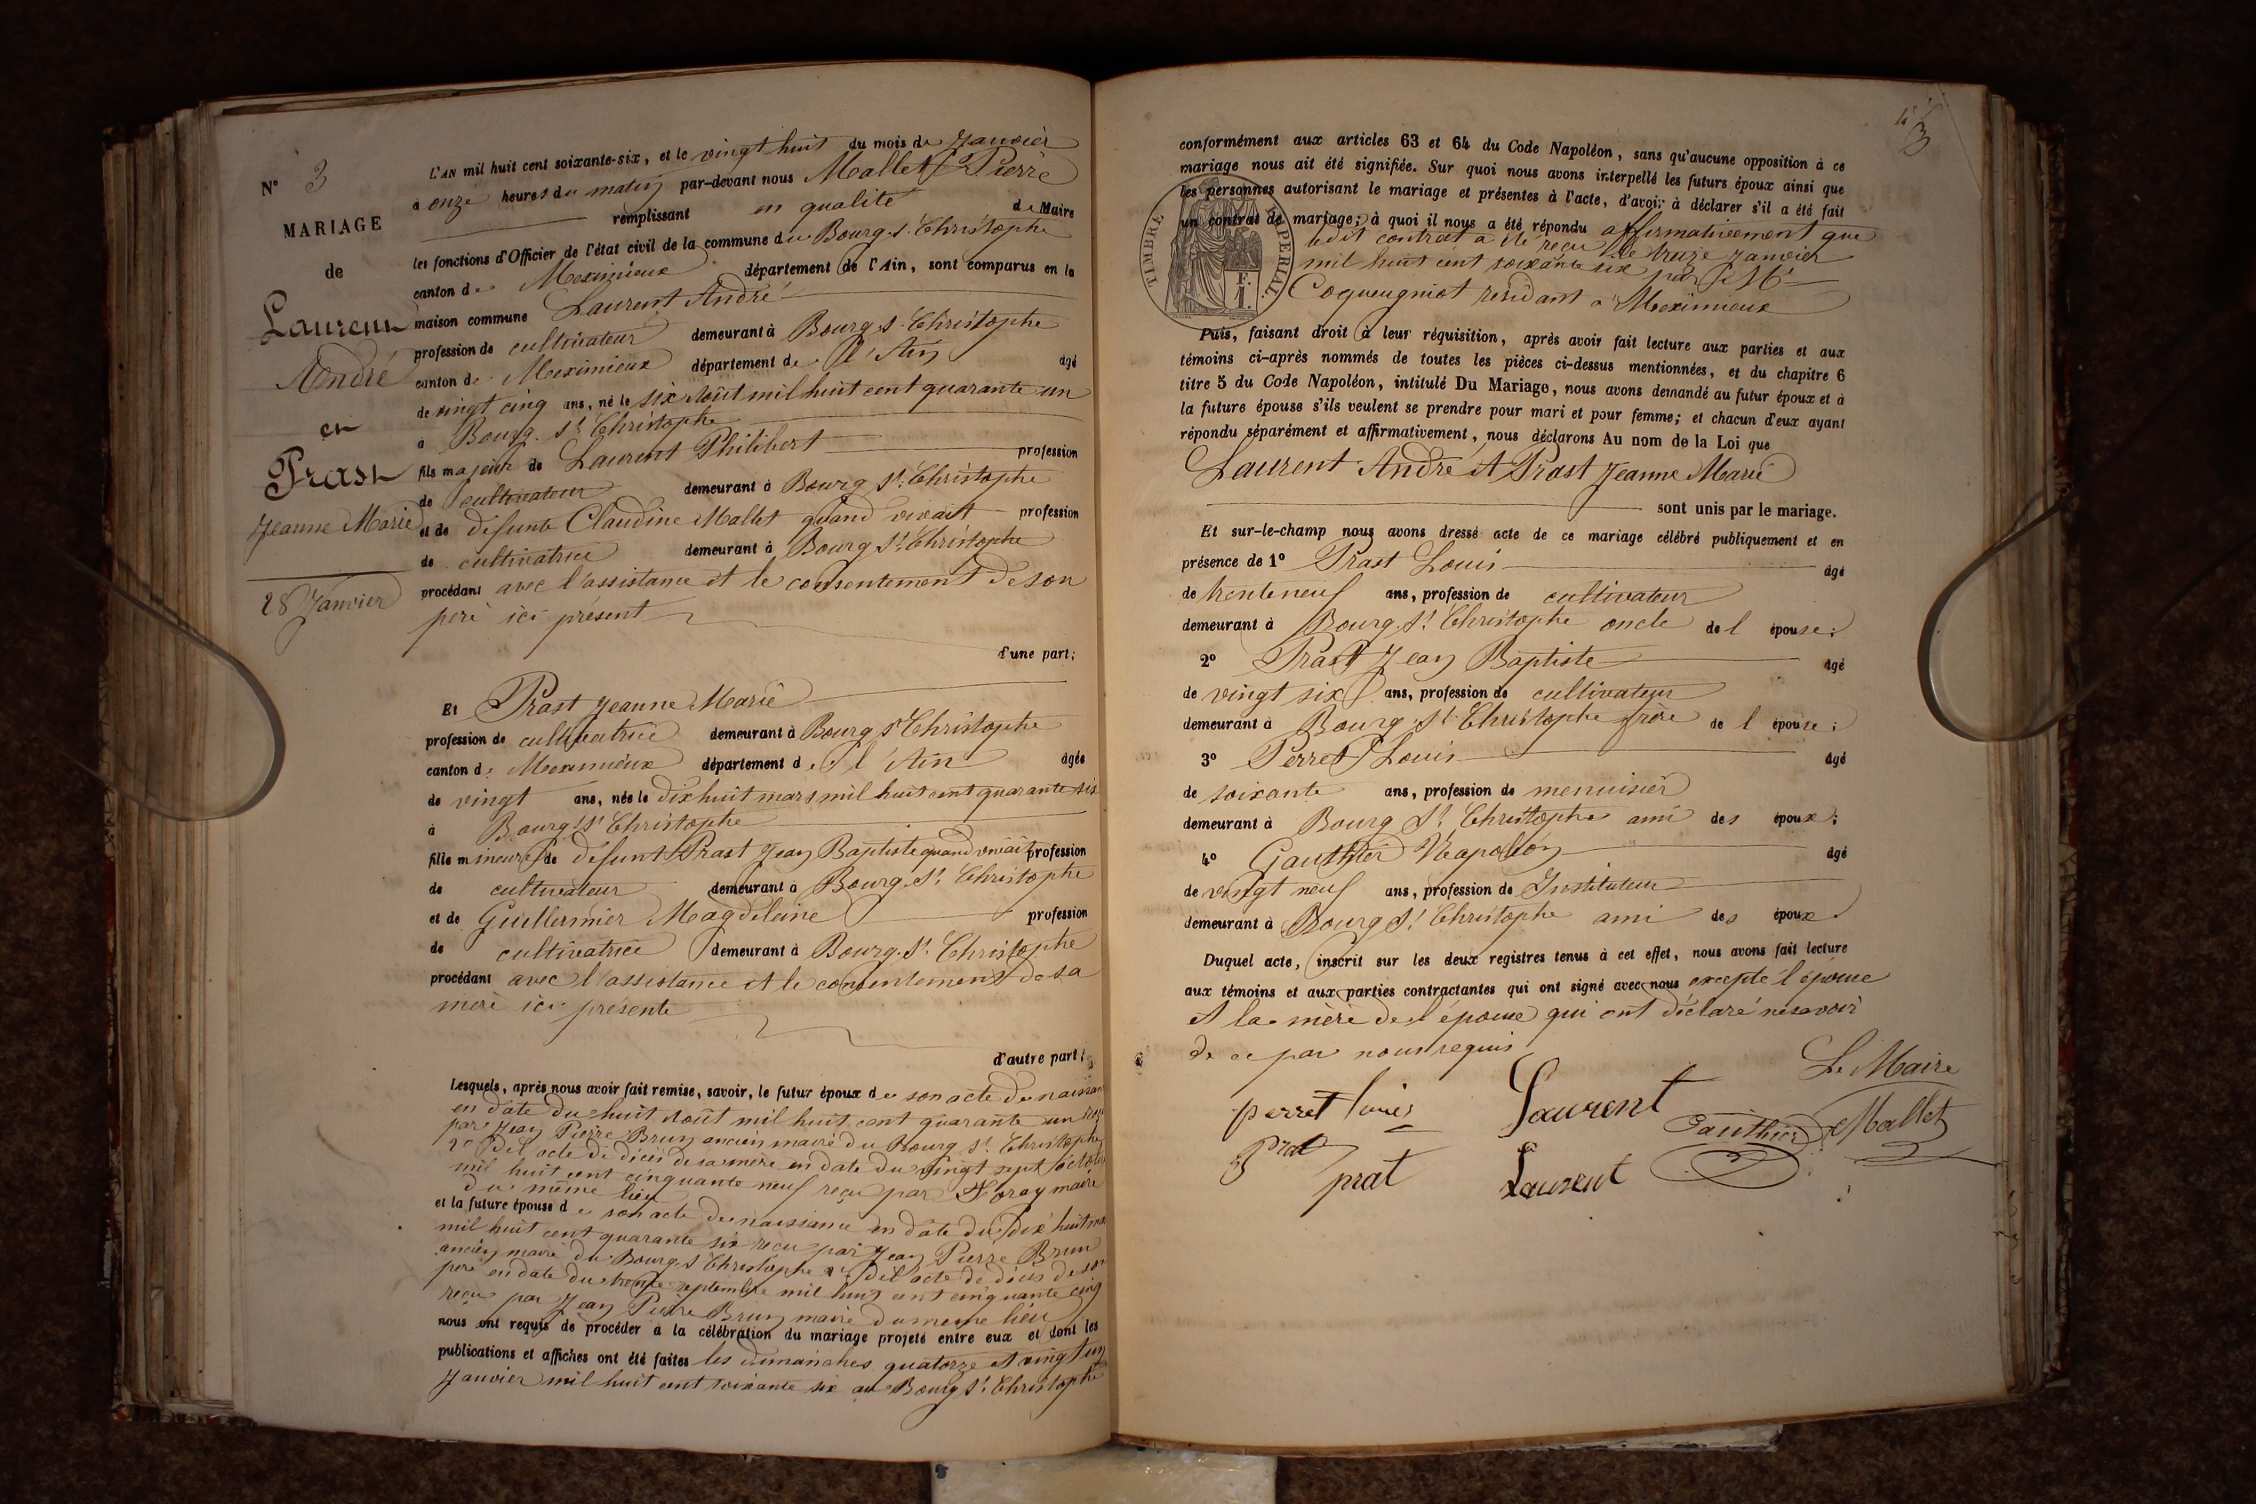 N° 3
MARIAGE
de
Laurent
André
et
Prast
Jeanne Marie
28 Janvier
L'AN mil huit cent soixante-six, et le vingt huit du mois de Janvier
à onze heures du matin par-devant nous Mallet Pierre
remplissant en qualité de Maire
les fonctions d'Officier de l'état civil de la commune du Bourg St Christophe
canton de Meximieux département de l'Ain, sont comparus en la
maison commune Laurent André
profession de cultivateur demeurant à Bourg St Christophe
canton de Meximieux département de l'Ain âgé
de vingt cinq ans, né le six Août mil huit cent quarante un
à Bourg St Christophe
fils majeur de Laurent Philibert profession
de cultivateur demeurant à Bourg St Christophe
et de défunte Claudine Mallet quand vivait profession
de cultivatrice demeurant à Bourg St Christophe
procédant avec l'assistance et le consentement de son
père ici présent
d'une part;
Et Prast Jeanne Marie
profession de cultivatrice demeurant à Bourg St Christophe
canton de Meximieux département de l'Ain âgée
de vingt ans, née le dix huit mars mil huit cent quarante six
à Bourg St Christophe
fille mineure de défunt Prast Jean Baptiste quand vivait profession
de cultivateur demeurant à Bourg St Christophe
et de Guillermier Magdeleine profession
de cultivatrice demeurant à Bourg St Christophe
procédant avec l'assistance et le consentement de sa
mère ici présente
d'autre part;
Lesquels, après nous avoir fait remise, savoir, le futur époux de son acte de naissance
en date du huit Août mil huit cent quarante un reçu
par Jean Pierre Brun ancien maire du Bourg St Christophe
2° Del acte de décès de sa mère en date du vingt sept octobre
mil huit cent cinquante neuf reçu par maire
du même lieu
et la future épouse de son acte de naissance en date du dix huit mars
mil huit cent quarante six reçu par Jean Pierre Brun
ancien maire du Bourg St Christophe 2° Del acte de décès de son
père en date du trente septembre mil huit cent cinquante cinq
reçu par Jean Pierre Brun maire du même lieu
nous ont requis de procéder à la célébration du mariage projeté entre eux et dont les
publications et affiches ont été faites les dimanches quatorze et vingt un
Janvier mil huit cent soixante six au Bourg St Christophe
3
conformément aux articles 63 et 64 du Code Napoléon, sans qu'aucune opposition à ce
mariage nous ait été signifiée. Sur quoi nous avons interpellé les futurs époux ainsi que
les personnes autorisant le mariage et présentes à l'acte, d'avoir à déclarer s'il a été fait
un contrat de mariage; à quoi il nous a été répondu affirmativement que
ledit contrat a été reçu le treize Janvier
mil huit cent soixante six par Me
Coqueugniot résidant à Meximieux
TIMBRE IMPERIAL
Puis, faisant droit à leur réquisition, après avoir fait lecture aux parties et aux
témoins ci-après nommés de toutes les pièces ci-dessus mentionnées, et du chapitre 6
titre 5 du Code Napoléon, intitulé Du Mariage, nous avons demandé au futur époux et à
la future épouse s'ils veulent se prendre pour mari et pour femme; et chacun d'eux ayant
répondu séparément et affirmativement, nous déclarons Au nom de la Loi que
Laurent André et Prast Jeanne Marie
sont unis par le mariage.
Et sur-le-champ nous avons dressé acte de ce mariage célébré publiquement et en
présence de 1° Prast Louis âgé
de trente neuf ans, profession de cultivateur
demeurant à Bourg St Christophe oncle de l épouse;
2° Prast Jean Baptiste âgé
de vingt six ans, profession de cultivateur
demeurant à Bourg St Christophe frère de l épouse;
3° Perret Louis âgé
de soixante ans, profession de menuisier
demeurant à Bourg St Christophe ami des époux;
4° Gauthier Napoléon âgé
de vingt neuf ans, profession de Instituteur
demeurant à Bourg St Christophe ami des époux.
Duquel acte, inscrit sur les deux registres tenus à cet effet, nous avons fait lecture
aux témoins et aux parties contractantes qui ont signé avec nous excepté l'épouse
et la mère de l'épouse qui ont déclaré ne savoir
de ce par nous requis
Le Maire
perret louis Laurent Gauthier Mallet
Prat
prat Laurent